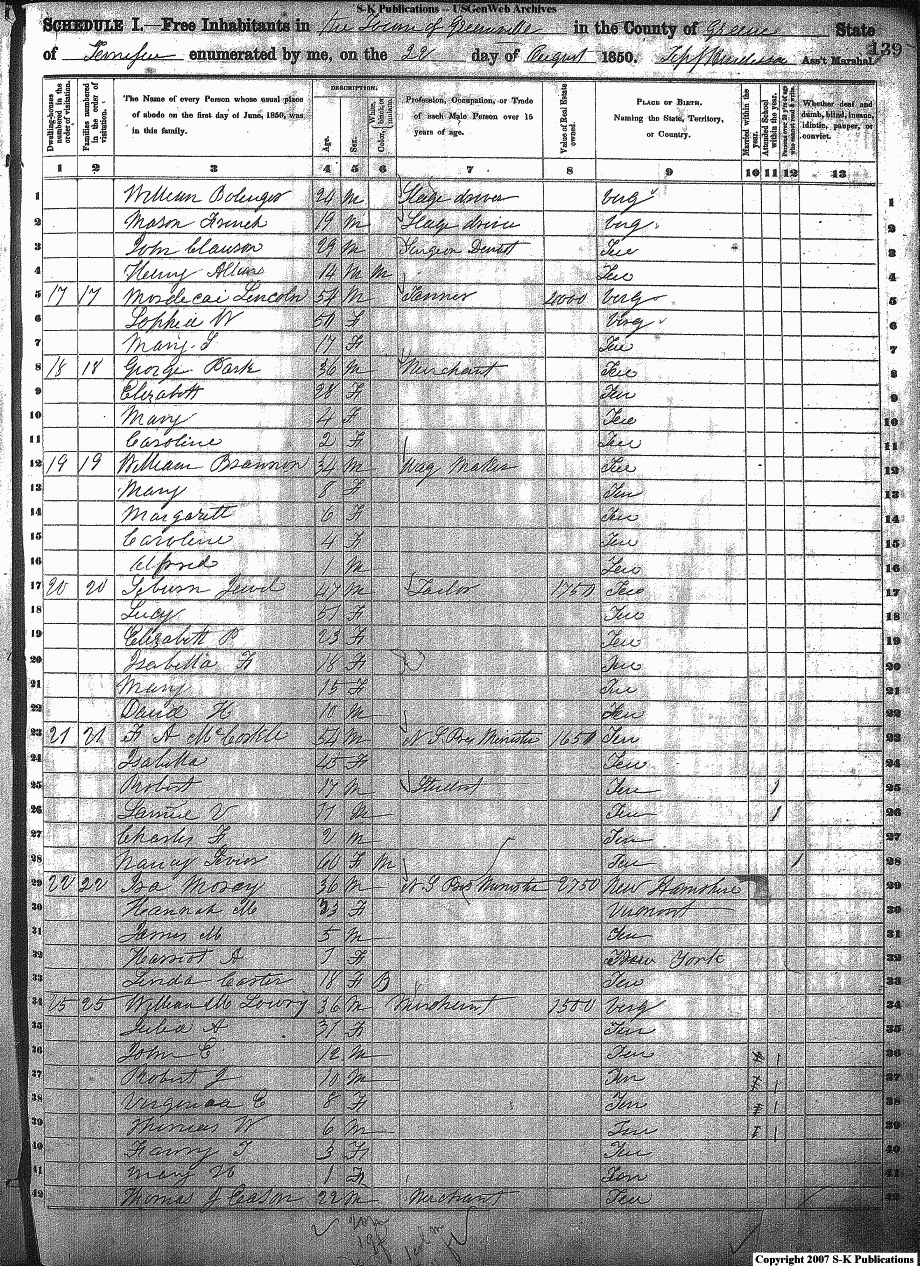 S-K Publications -- USGenWeb Archives
SCHEDULE I.—Free Inhabitants in the Town of Greenville in the County of Greene State
139
of Tennessee enumerated by me, on the 22 day of August 1850. Ass't Marshal.
Dwelling-houses numbered in the order of visitation.
Families numbered in the order of visitation.
The Name of every Person whose usual place of abode on the first day of June, 1850, was in this family.
DESCRIPTION.
Age.
Sex.
Color, White, black, or mulatto.
Profession, Occupation, or Trade of each Male Person over 15 years of age.
Value of Real Estate owned.
PLACE OF BIRTH. Naming the State, Territory, or Country.
Married within the year.
Attended School within the year.
Persons over 20 y'rs of age who cannot read & write.
Whether deaf and dumb, blind, insane, idiotic, pauper, or convict.
1 2 3 4 5 6 7 8 9 10 11 12 13
1 William 24 M Stage driver Virg 1
2 Mason French 19 M Stage driver Virg 2
3 John Clawson 29 M Surgeon Dentist Ten 3
4 Henry 14 M M Ten 4
5 17 17 Mordecai Lincoln 54 M Tanner 4000 Virg 5
6 Sophia W 50 F Virg 6
7 Mary S 17 F Ten 7
8 18 18 George 36 M Merchant Ten 8
9 Elizabeth 28 F Ten 9
10 Mary 4 F Ten 10
11 Caroline 2 F Ten 11
12 19 19 William Brannon 34 M Wag Maker Ten 12
13 Mary 8 F Ten 13
14 Margarett 6 F Ten 14
15 Caroline 4 F Ten 15
16 Alfred 1 M Ten 16
17 20 20 47 M Tailor 1750 Ten 17
18 Lucy 51 F Ten 18
19 Elizabeth P 23 F Ten 19
20 Isabella F 18 F Ten 20
21 Mary 15 F Ten 21
22 David H 10 M Ten 22
23 21 21 F A McCorkle 54 M N S Pre Minister 1650 Ten 23
24 Isabella 45 F Ten 24
25 Robert 17 M Student Ten 1 25
26 Samuel V 11 M Ten 1 26
27 Charles F 2 M Ten 27
28 Nancy 60 F M Ten 1 28
29 22 22 Ira Moray 36 M N S Pres Minister 2750 New Hampshire 29
30 Hannah M 23 F Vermont 30
31 James M 5 M Ten 31
32 Harriot A 1 F New York 32
33 Linda Carter 18 F B Ten 33
34 25 25 William M Lowry 36 M Merchant 1500 Virg 34
35 Julia A 31 F Ten 35
36 John E 12 M Ten 1 36
37 Robert J 10 M Ten 1 37
38 Virginia C 8 F Ten 1 38
39 Thomas W 6 M Ten 1 39
40 Fanny T 3 F Ten 40
41 Mary 1 F Ten 41
42 Thomas J Eason 22 M Merchant Ten 42
Copyright 2007 S-K Publications